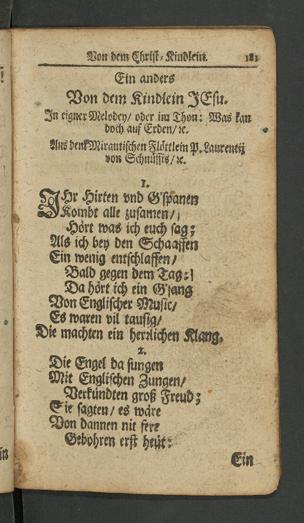 Von dem Christ-Kindlein. 181
Ein anders
Von dem Kindlein JEsu.
In eigner Melodey/ oder im Thon: Was kan
doch auf Erden/ ꝛc.
Aus denẽ Mirantischen Flöttlein P. Laurentij
von Schnüffis/ ꝛc.
1.
IHr Hirten vnd G'spanen
Kombt alle zusamen/
Hört was ich euch sag;
Als ich bey den Schaaffen
Ein wenig entschlaffen/
Bald gegen dem Tag:
Da hört ich ein G'sang
Von Englischer Music/
Es waren vil tausig/
Die machten ein herrlichen Klang.
2.
Die Engel da sungen
Mit Englischen Zungen/
Verkündten groß Freud;
Sie sagten/ es wäre
Von dannen nit fere
Gebohren erst heüt:
Ein